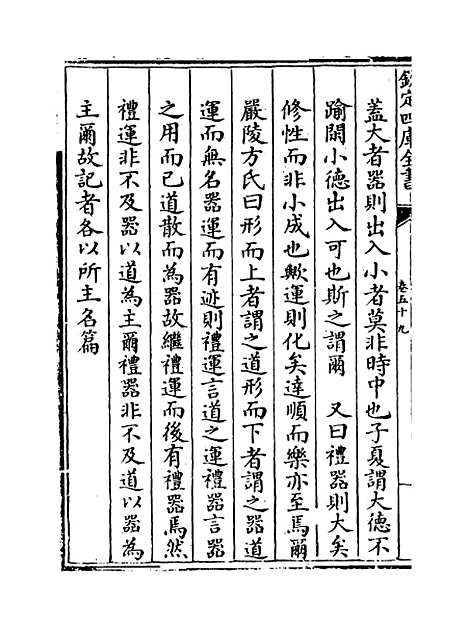 欽定四庫全書
卷五十九
蓋大者器則出入小者莫非時中也子夏謂大德不
踰閑小德出入可也斯之謂爾　又曰禮器則大矣
修性而非小成也歟運則化矣達順而樂亦至焉爾
嚴陵方氏曰形而上者謂之道形而下者謂之器道
運而無名器運而有迹則禮運言道之運禮器言器
之用而已道散而為器故繼禮運而後有禮器焉然
禮運非不及器以道為主爾禮器非不及道以器為
主爾故記者各以所主名篇